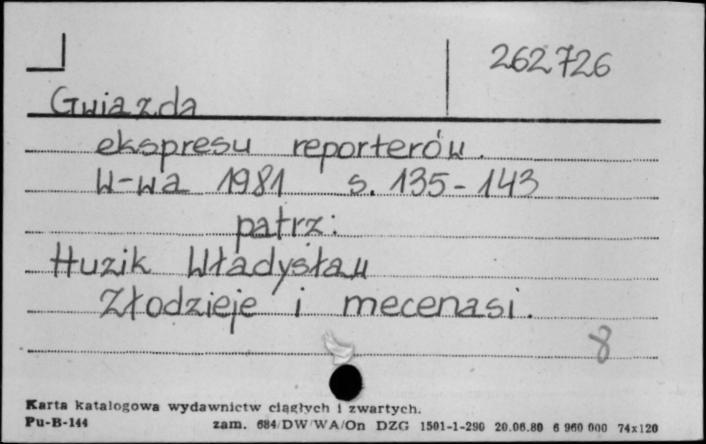 262726
Gwiazda
ekspresu reporterów.
W-wa 1981 s. 135-143
patrz:
Huzik Władysław
Złodzieje i mecenasi.
8
Karta katalogowa wydawnictw ciągłych i zwartych.
Pu-B-144 zam. 684/DW/WA/On DZG 1501-1-290 20.06.80 6 960 000 74x120